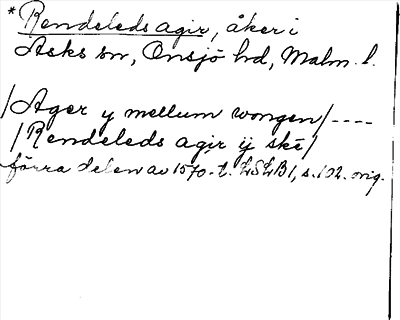 *Rendeleds agir, åker i
Asks sn, Onsjö hd, Malm. l.
/Ager y mellum wongen/----
/Rendeleds agir ÿ skē/
förra delen av 1570-t. LSLB1, s. 102. orig.